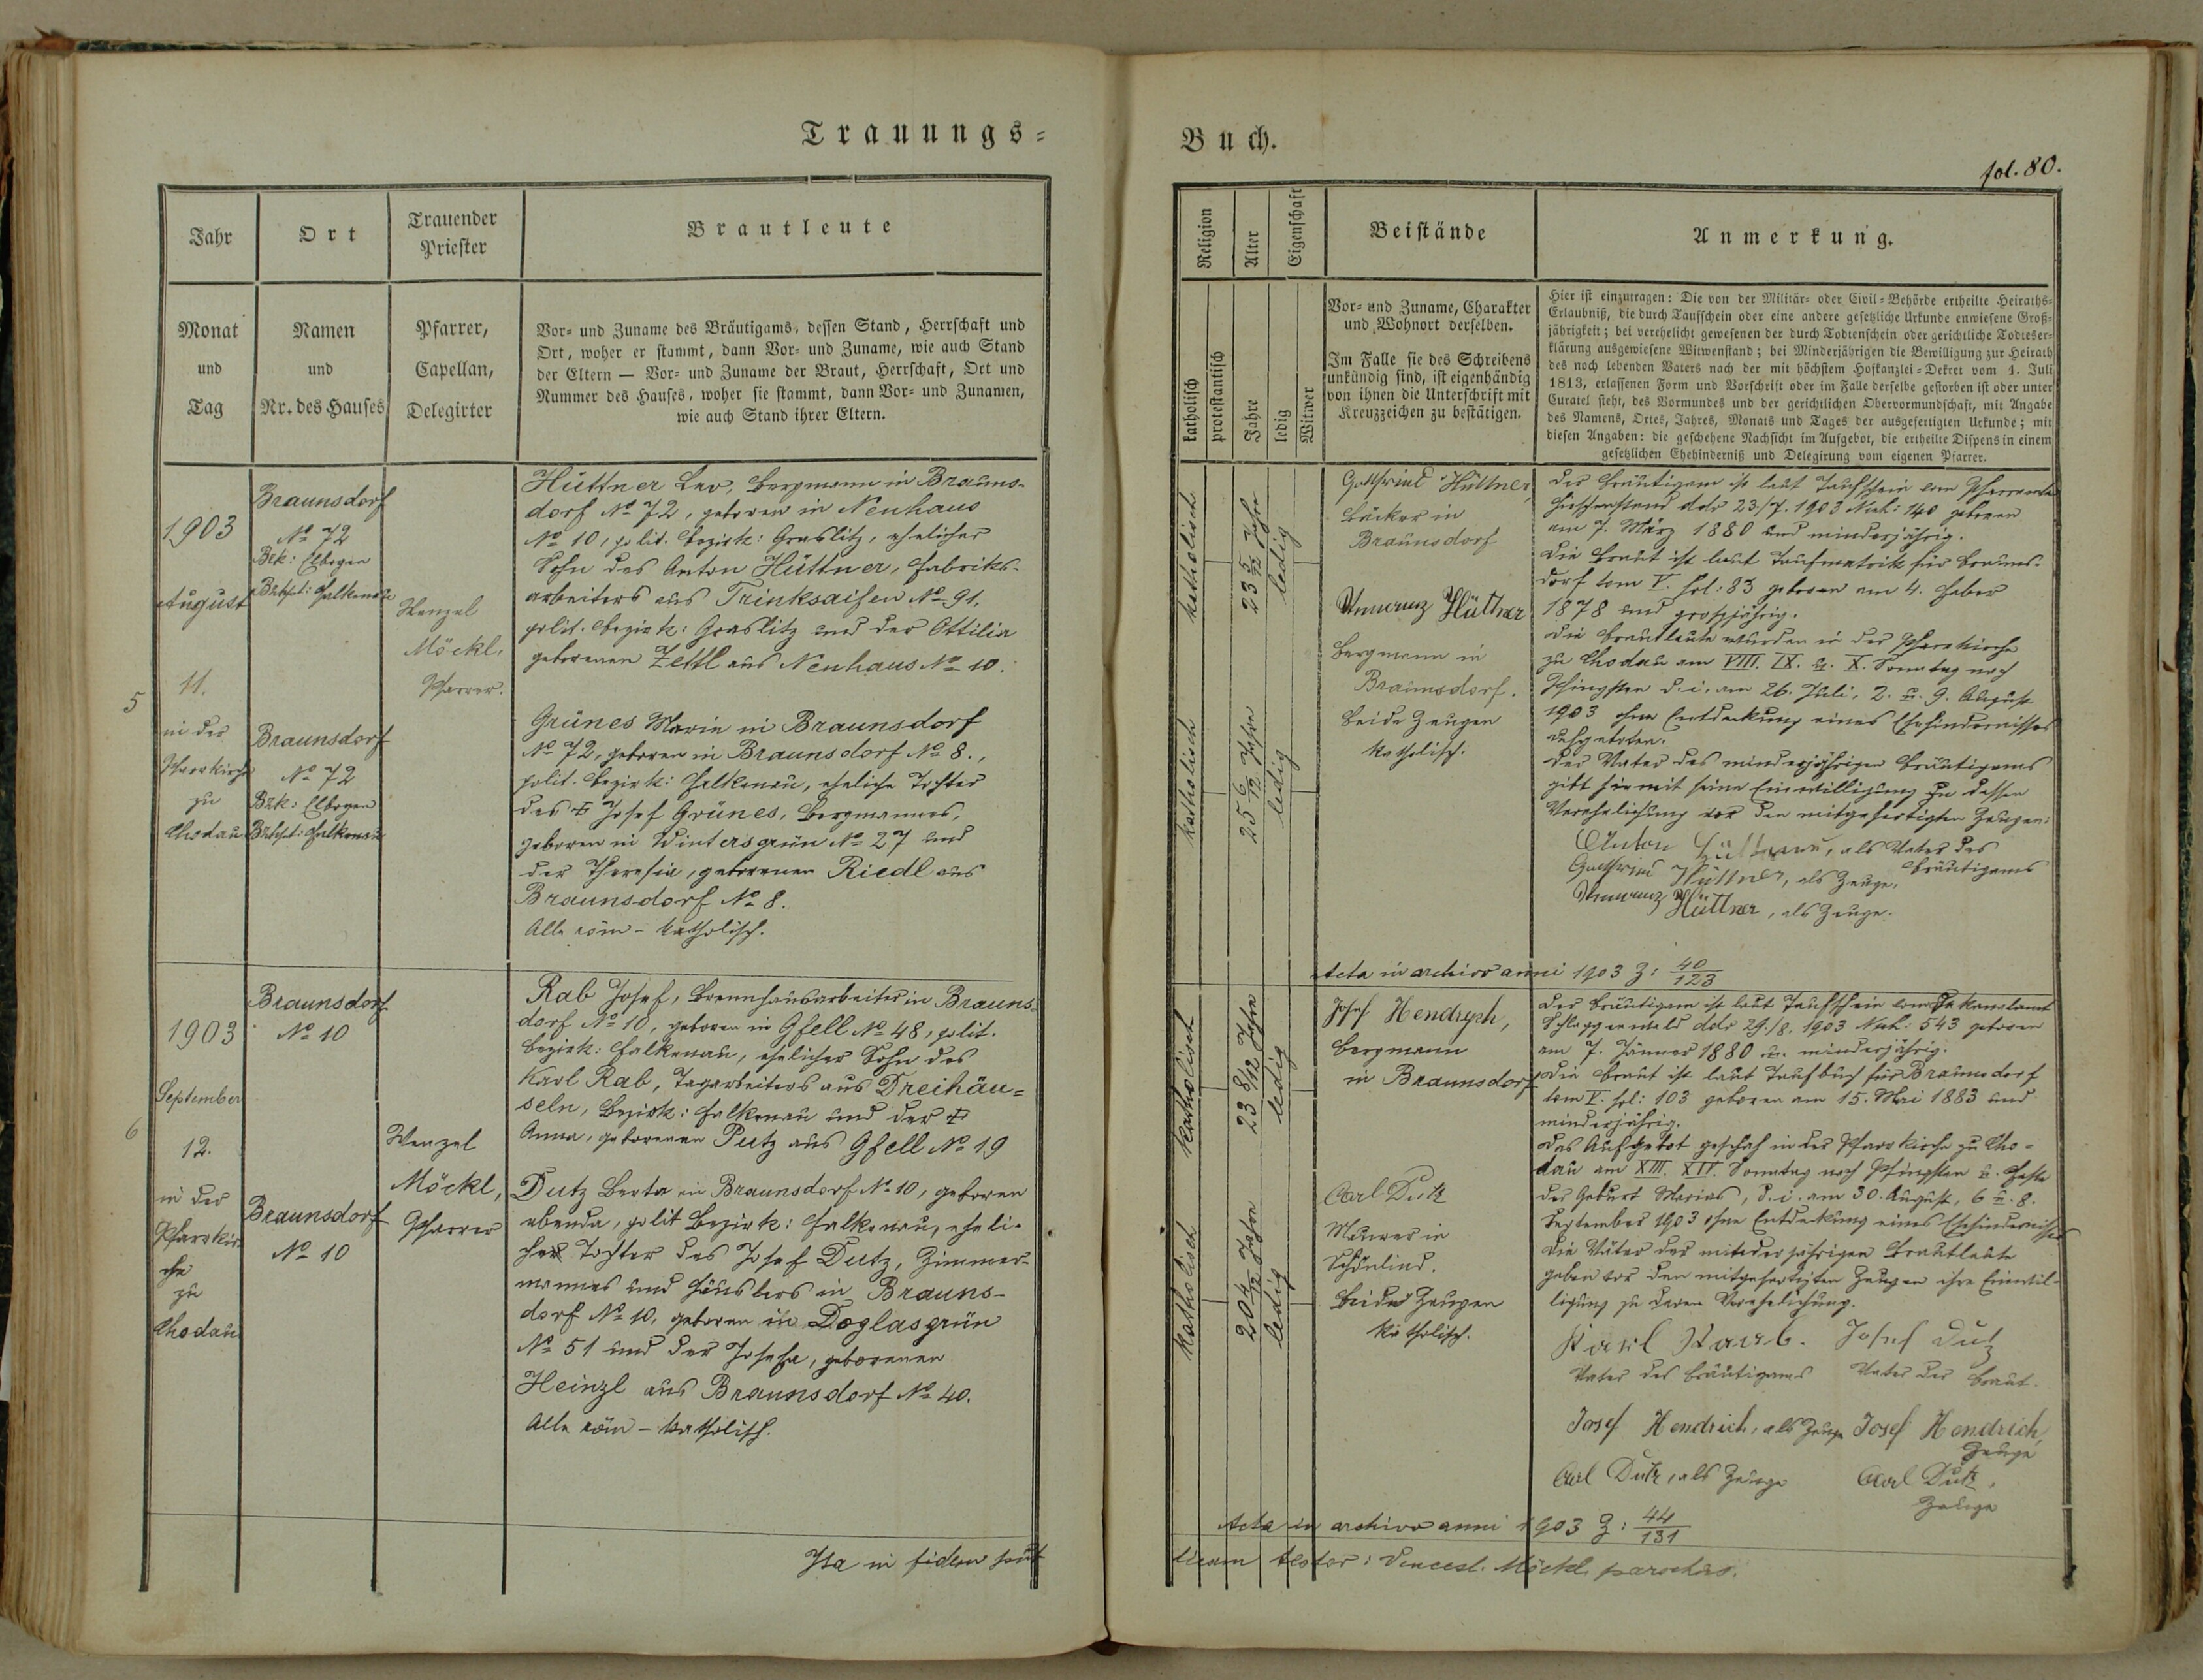 Trauungs=
Jahr
Ort
Trauender
Priester
Brautleute
Monat
und
Tag
Namen
und
Nr. des Hauses
Pfarrer,
Capellan,
Delegirter
Vor= und Zuname des Bräutigams, dessen Stand, Herrschaft und
Ort, woher er stammt, dann Vor= und Zuname, wie auch Stand
der Eltern — Vor= und Zuname der Braut, Herrschaft, Ort und
Nummer des Hauses, woher sie stammt, dann Vor= und Zunamen,
wie auch Stand ihrer Eltern.
5
1903
August
11.
in der
Pfarrkirche
zu
Chodau
Braunsdorf
No 72
Bzk: Elbogen
Falkenau
Braunsdorf
No 72
Bzk: Elbogen
Falkenau
Wenzel
Möckl,
Pfarrer.
Hüttner Leo, Bergmann in Brauns-
dorf No 72, geboren in Neuhaus
No 10, polit. Bezirk: Graslitz, ehelicher
Sohn des Anton Hüttner, Fabriks-
arbeiters aus Trinksaifen No 91,
polit. Bezirk: Graslitz und der Ottilia
geborenen Zettl aus Neuhaus No 10.
Grünes Maria in Braunsdorf
No 72, geboren in Braunsdorf No 8.,
polit. Bezirk: Falkenau, eheliche Tochter
des † Josef Grünes, Bergmannes,
geboren in Wintersgrün No 27 und
der Theresia, geborenen Riedl aus
Braunsdorf No 8.
Alle röm-katholisch.
6
1903
September
12.
in der
Pfarrkir-
che
zu
Chodau
Braunsdorf
No 10
Braunsdorf
No 10
Wenzel
Möckl,
Pfarrer
Rab Josef, Brennhausarbeiter in Brauns-
dorf No 10, geboren in Gfell No 48, polit.
Bezirk: Falkenau, ehelicher Sohn des
Karl Rab, Tagarbeiters aus Dreihäu=
seln, Bezirk: Falkenau und der †
Anna, geborenen Putz aus Gfell No 19
Dutz Berta in Braunsdorf No 10, geboren
ebenda, polit Bezirk: Falkenau, eheli-
che Tochter des Josef Dutz, Zimmer-
mannes und Häuslers in Brauns-
dorf No 10, geboren in Doglasgrün
No 51 und der Josefa, geborenen
Heinzl aus Braunsdorf No 40.
Alle röm-katholisch.
Ita in fidem
Buch.
fol. 80.
Religion
Alter
Eigenschaft
Beistände
Anmerkung.
katholisch
protestantisch
Jahre
ledig
Witwer
Vor= und Zuname, Charakter
und Wohnort derselben.
Im Falle sie des Schreibens
unkündig sind, ist eigenhändig
von ihnen die Unterschrift mit
Kreuzzeichen zu bestätigen.
Hier ist einzutragen: Die von der Militär= oder Civil=Behörde ertheilte Heiraths=
Erlaubniß, die durch Taufschein oder eine andere gesetzliche Urkunde erwiesene Groß=
jährigkeit; bei verehelicht gewesenen der durch Todtenschein oder gerichtliche Todteser=
klärung ausgewiesene Witwenstand; bei Minderjährigen die Bewilligung zur Heirath
des noch lebenden Vaters nach der mit höchstem Hofkanzlei=Dekret vom 1. Juli
1813, erlassenen Form und Vorschrift oder im Falle derselbe gestorben ist oder unter
Curatel steht, des Vormundes und der gerichtlichen Obervormundschaft, mit Angabe
des Namens, Ortes, Jahres, Monats und Tages der ausgefertigten Urkunde; mit
diesen Angaben: die geschehene Nachsicht im Aufgebot, die ertheilte Dispens in einem
gesetzlichen Ehehinderniß und Delegirung vom eigenen Pfarrer.
katholisch
23 5/12 Jahre
ledig
katholisch
25 6/12 Jahre
ledig
Gottfried Hüttner,
Bäcker in
Braunsdorf
Hüttner
Bergmann in
Braunsdorf.
Beide Zeugen
katholisch.
Der Bräutigam ist laut Taufschein vom Pfarramte
Hirschenstand ddo 23./7. 1903 Nrch: 140 geboren
am 7. März 1880 und minderjährig.
Die Braut ist laut Taufmatrik für Brauns-
dorf tom V. fol: 83 geboren am 4. Feber
1878 und großjährig.
Die Brautleute wurden in der Pfarrkirche
zu Chodau am VIII. IX. u. X. Sonntag nach
Pfingsten d. i. am 26. Juli, 2. u. 9. August
1903 ohne Entdeckung eines Ehehindernisses
aufgeboten.
Der Vater des minderjährigen Bräutigams
gibt hiermit seine Einwilligung zu dessen
Verehelichung vor den mitgefertigten Zeugen:
Anton Hüttner, als Vater des
Bräutigams
Gottfried Hüttner, als Zeuge.
Hüttner, als Zeuge.
Acta in archivo anni 1903 Z: 40/123
katholisch
23 8/12 Jahre
ledig
katholisch
20 4/12 Jahre
ledig
Josef Hendrych,
Bergmann
in Braunsdorf
Carl Dutz
Maurer in
Schönlind.
Beide Zeugen
katholisch.
Der Bräutigam ist laut Taufschein vom Dekanalamt
Schlaggenwald ddo 29./8. 1903 Nrch: 543 geboren
am 7. Jänner 1880 u. minderjährig.
Die Braut ist laut Taufbuch für Braunsdorf
tom V. fol: 103 geboren am 15. Mai 1883 und
minderjährig.
Das Aufgebot geschah in der Pfarrkirche zu Cho-
dau am XIII. XIV. Sonntag nach Pfingsten u. Feste
der Geburt Marias, d. i. am 30. August, 6 u. 8.
September 1903 ohne Entdekung eines Ehehindernisses
Die Väter der minderjährigen Brautleute
geben vor den mitgefertigten Zeugen ihre Einwil-
ligung zu deren Verehelichung.
Karl Raab. Josef Dutz
Vater des Bräutigams Vater der Braut.
Josef Hendrich, als Zeuge Josef Hendrich,
Zeuge
Carl Dutz, als Zeuge Carl Dutz,
Zeuge
Acta in archivo anni 1903 Z: 44/131
testor: Vencesl. Möckl, parochus.